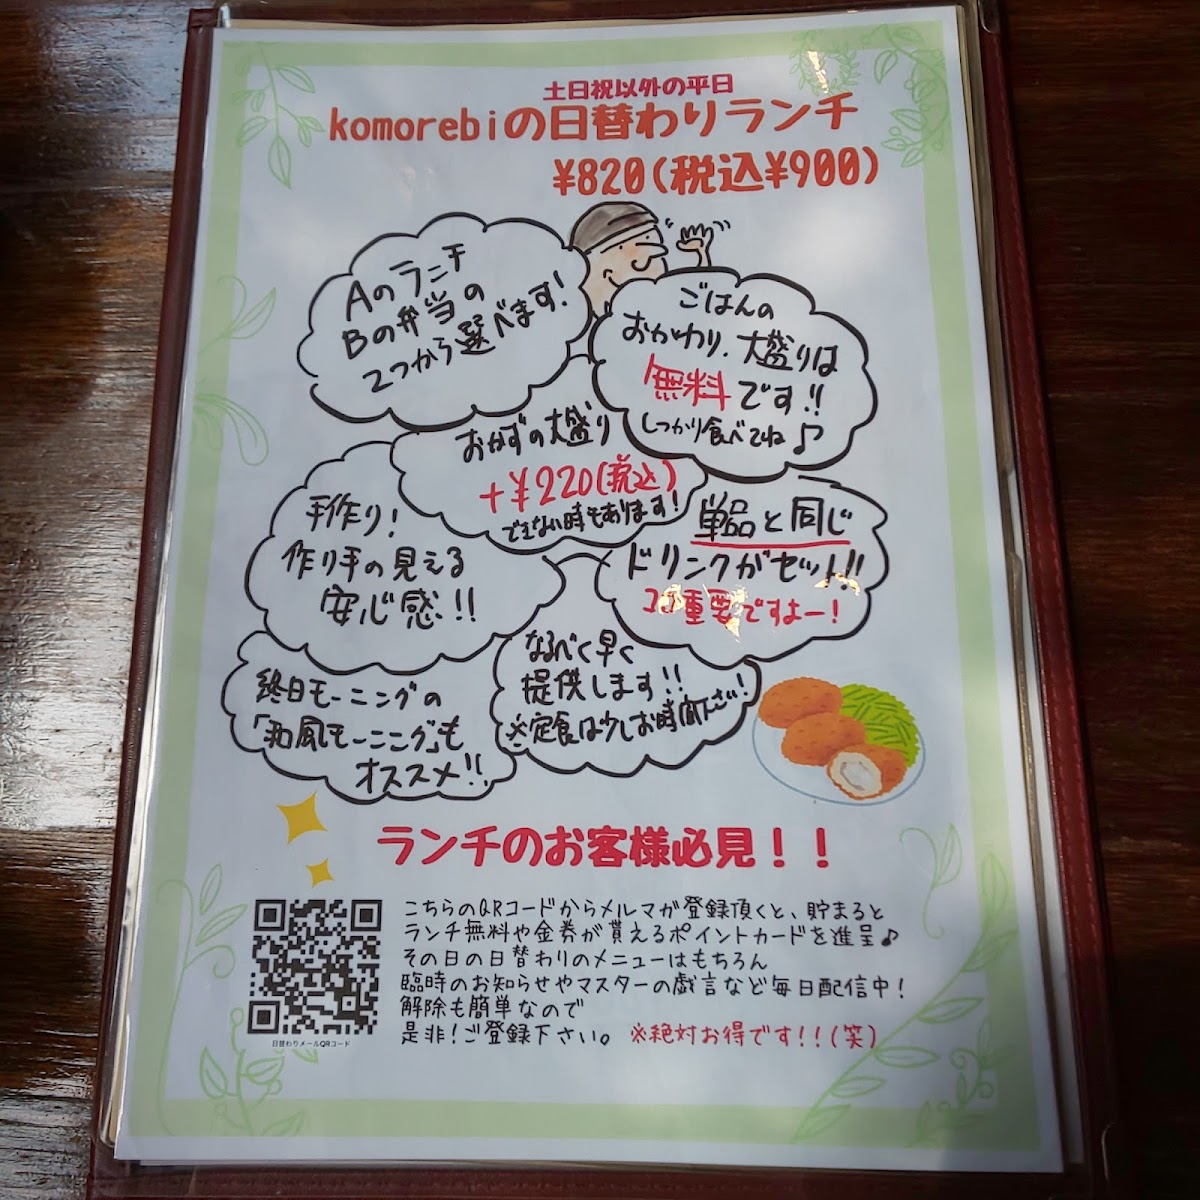 土日祝以外の平日
komorebiの日替わりランチ
¥820(税込¥900)
Aのランチ
Bの弁当の
2つから選べます!
ごはんの
おかわり、大盛りは
無料です!!
しっかり食べてね♪
おかずの大盛り
+¥220(税込)
できない時もあります!
手作り!
作り手の見える
安心感!!
単品と同じ
ドリンクがセット!!
ココ重要ですよー!
なるべく早く
提供します!!
※定食は少しお時間下さい!
終日モーニングの
「和風モーニング」も
オススメ!!
ランチのお客様必見!!
こちらのQRコードからメルマガ登録頂くと、貯まると
ランチ無料や金券が貰えるポイントカードを進呈♪
その日の日替わりのメニューはもちろん
臨時のお知らせやマスターの戯言など毎日配信中!
解除も簡単なので
是非!ご登録下さい。 ※絶対お得です!!(笑)
日替わりメールQRコード